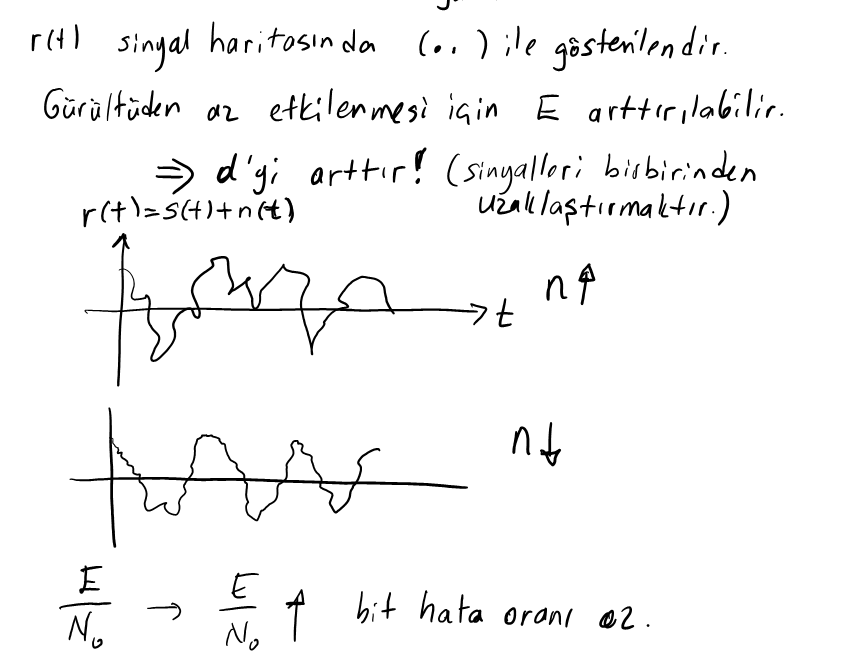 r(t) sinyal haritasında (..) ile gösterilendir.
Gürültüden az etkilenmesi için E arttırılabilir.
⇒ d'yi arttır! (sinyalleri birbirinden
uzaklaştırmaktır.)
r(t)=s(t)+n(t)
t
n↑
n↓
E/N₀ → E/N₀ ↑ bit hata oranı az.